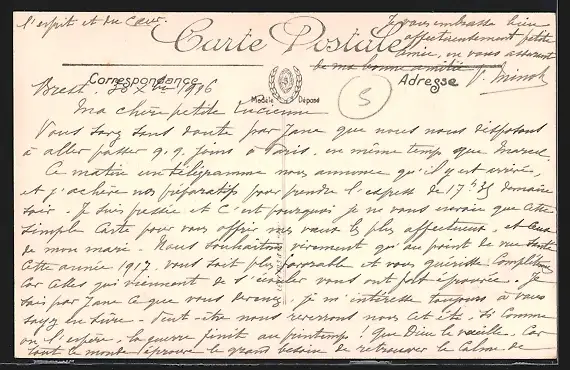 l'esprit et du cœur.
Je vous embrasse bien
affectueusement petite
amie, en vous assurant
de ma bonne amitié
Carte Postale
Correspondance
Adresse
Modèle Déposé
5
Brest. 28 Xbre 1916
Ma chère petite Lucienne
Vous savez sans doute par Jane que nous nous disposons
à aller passer q.q. jours à Paris, en même temps que Marcel.
Ce matin un télégramme nous annonce qu'il y est arrivé,
et j'achève nos préparatifs pour prendre l'express de 17h 35 demain
soir. Je suis pressée et c'est pourquoi je ne vous envoie que cette
simple carte pour vous offrir mes vœux les plus affectueux, et ceux
de mon mari. Nous souhaitons vivement qu'au point de vue santé
cette année 1917 vous soit plus favorable et vous guérisse complètement
car celles qui viennent de s'écouler vous ont fort éprouvée. Je
sais par Jane ce que vous devenez, je m'intéresse toujours à vous
soyez en sûre. Peut-être nous reverrons nous cet été, si comme
on l'espère, la guerre finit au printemps! Que Dieu le veuille, car
tout le monde éprouve le grand besoin de retrouver le calme de